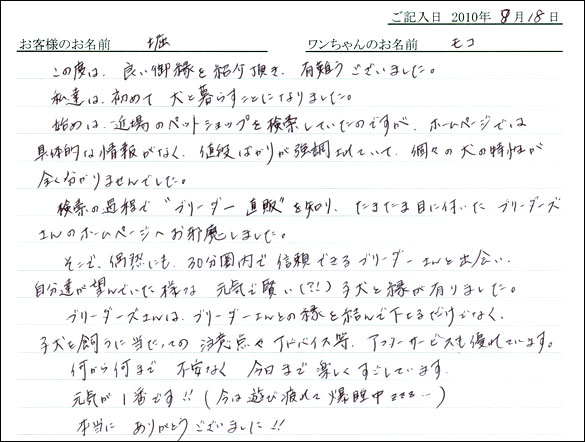 ご記入日 2010年 8月18日
お客様のお名前 堀 ワンちゃんのお名前 モコ
この度は、良い御縁を紹介頂き、有難うございました。
私達は、初めて 犬と暮らすことになりました。
始めは、近場のペットショップを検索していたのですが、ホームページでは
具体的な情報がなく、値段ばかりが強調されていて、個々の犬の特性が
全く分かりませんでした。
検索の過程で "ブリーダー直販" を知り、たまたま目に付いた ブリーダーズ
さんのホームページへお邪魔しました。
そこで、偶然にも、30分圏内で 信頼できるブリーダーさんと出会い、
自分達が望んでいた様な 元気で賢い(?!) 子犬と縁が有りました。
ブリーダーズさんは、ブリーダーさんとの縁を結んで下さるだけでなく、
子犬を飼うに当たっての 注意点やアドバイス等、アフターサービスも優れています。
何から何まで 不安なく 今日まで楽しくすごしています。
元気が1番です!! (今は遊び疲れて爆睡中ZZZ…)
本当に ありがとうございました!!